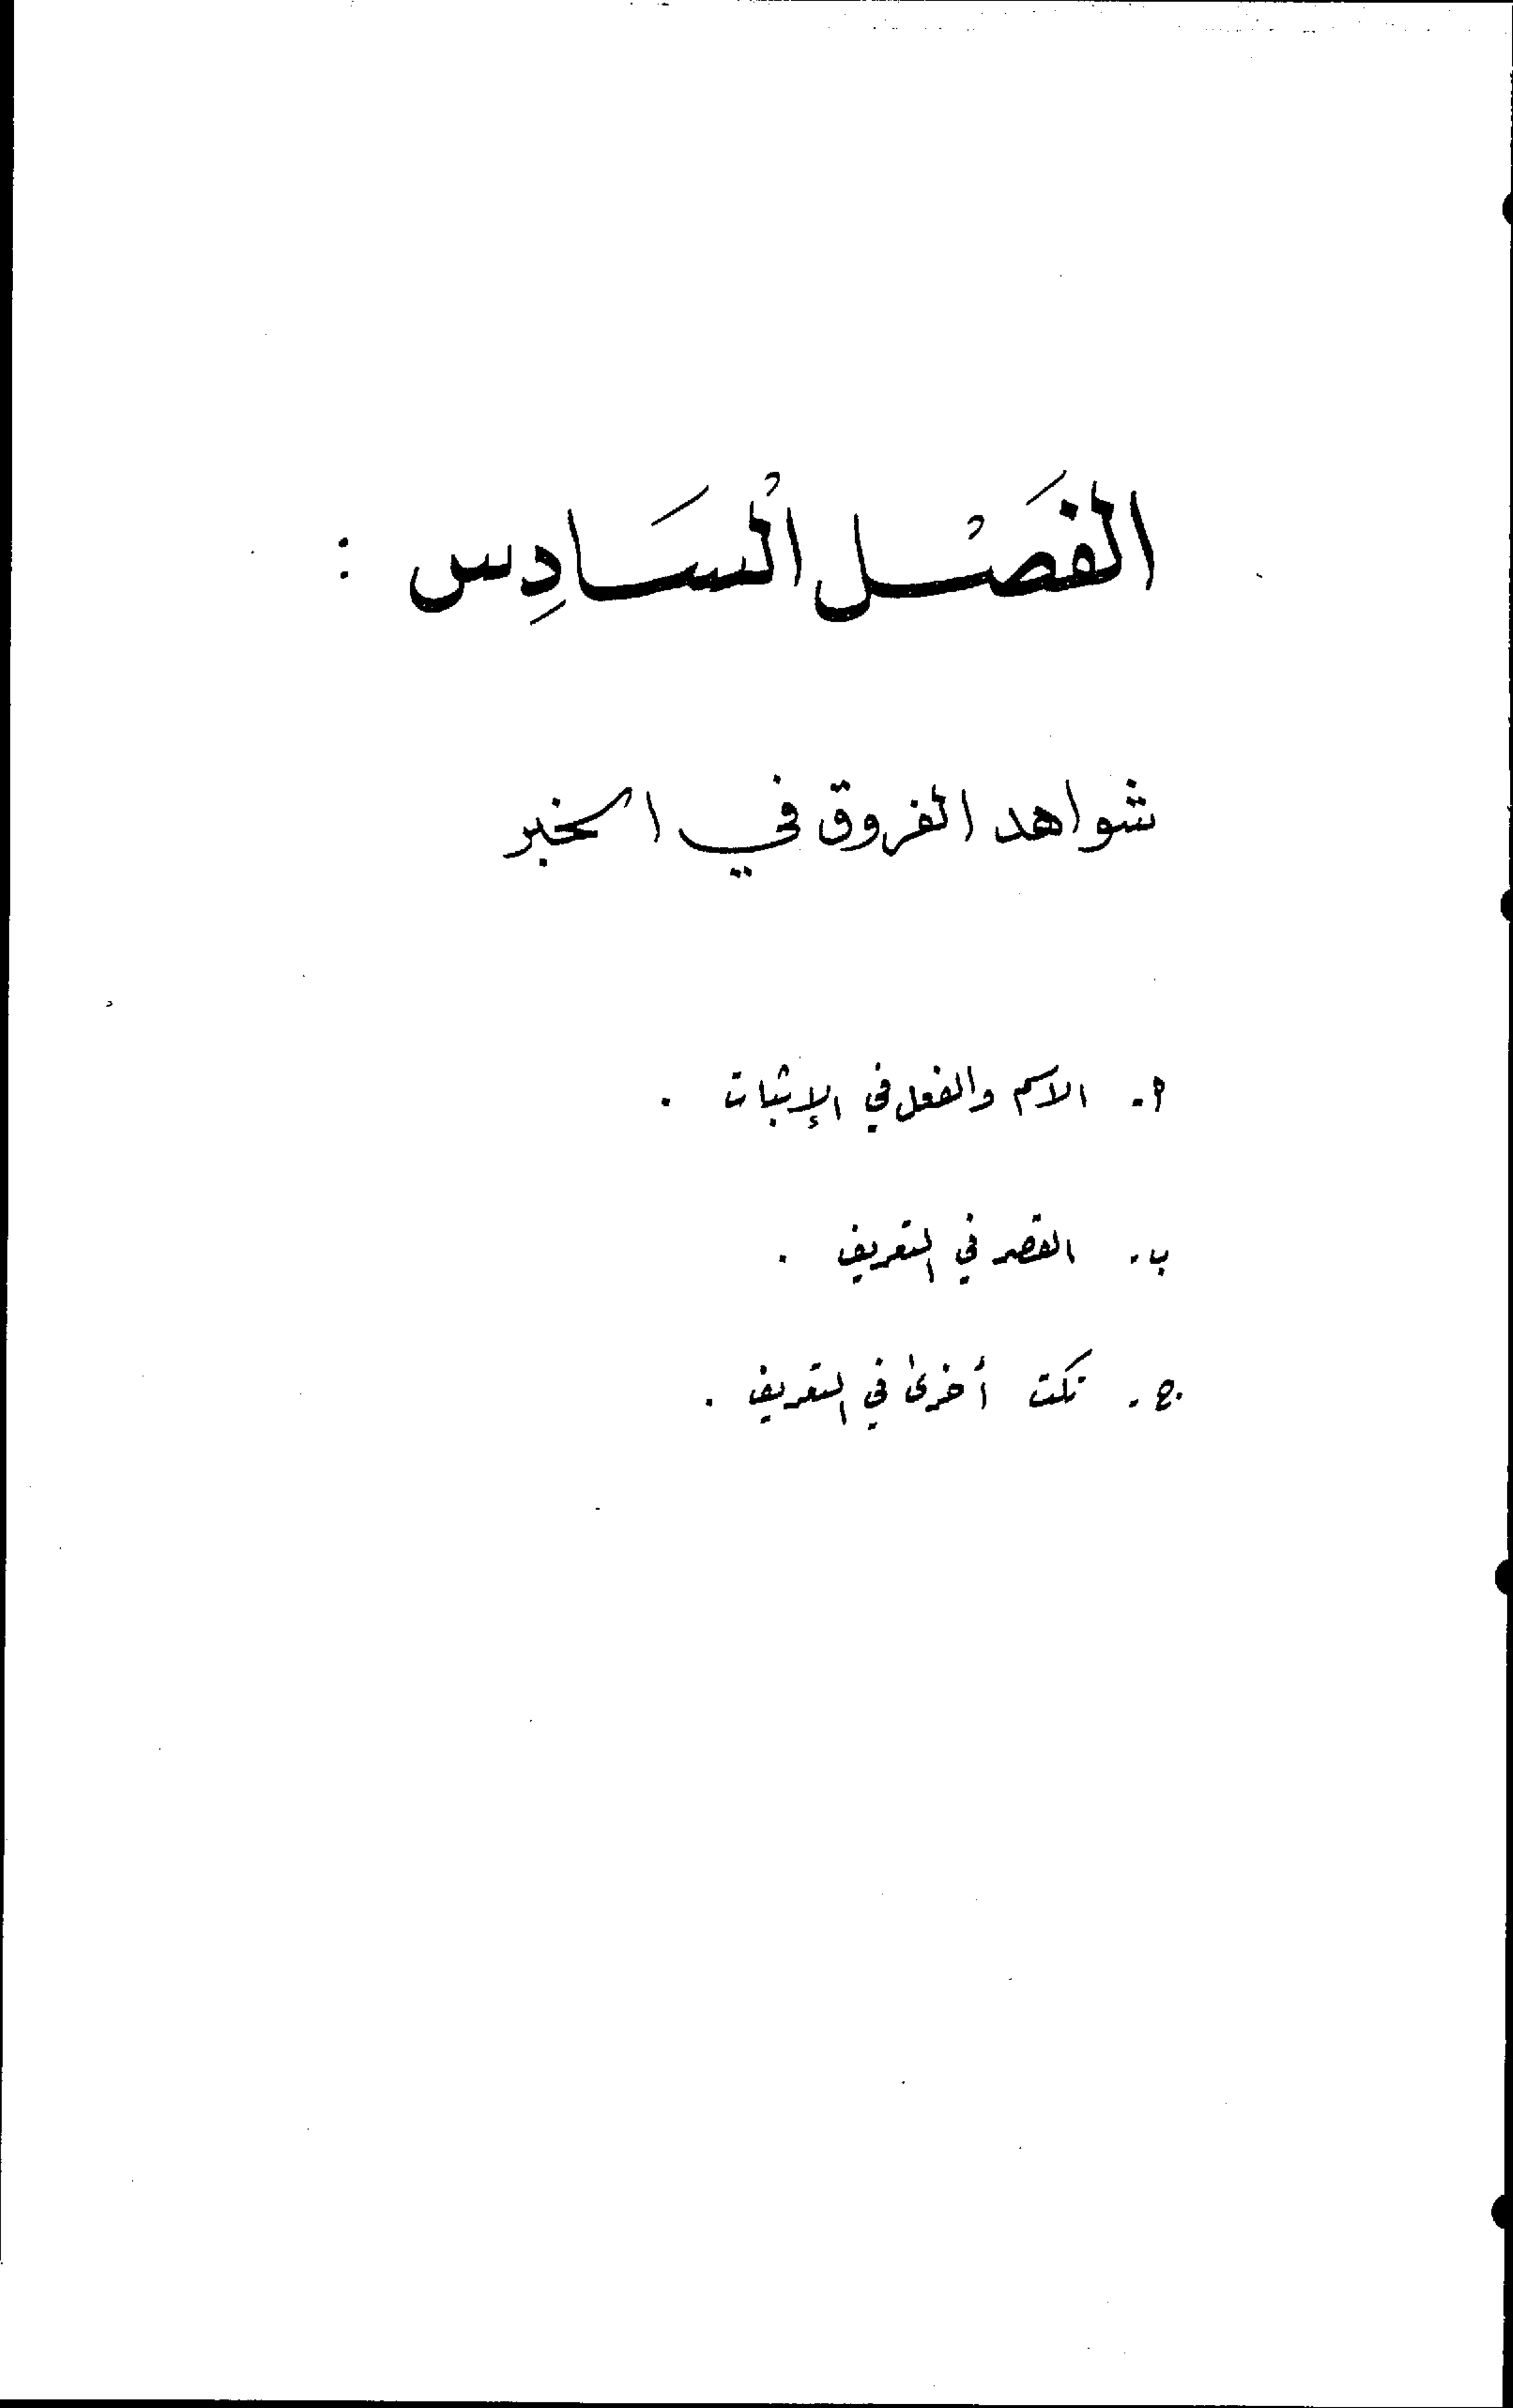 الفَصْل الْسَادِس :
شواهد الفروق في الخبر
أ- الاسم والفعل في الإثبات .
ب- القصر في التعريف .
ج- نكت أخرى في التعريف .